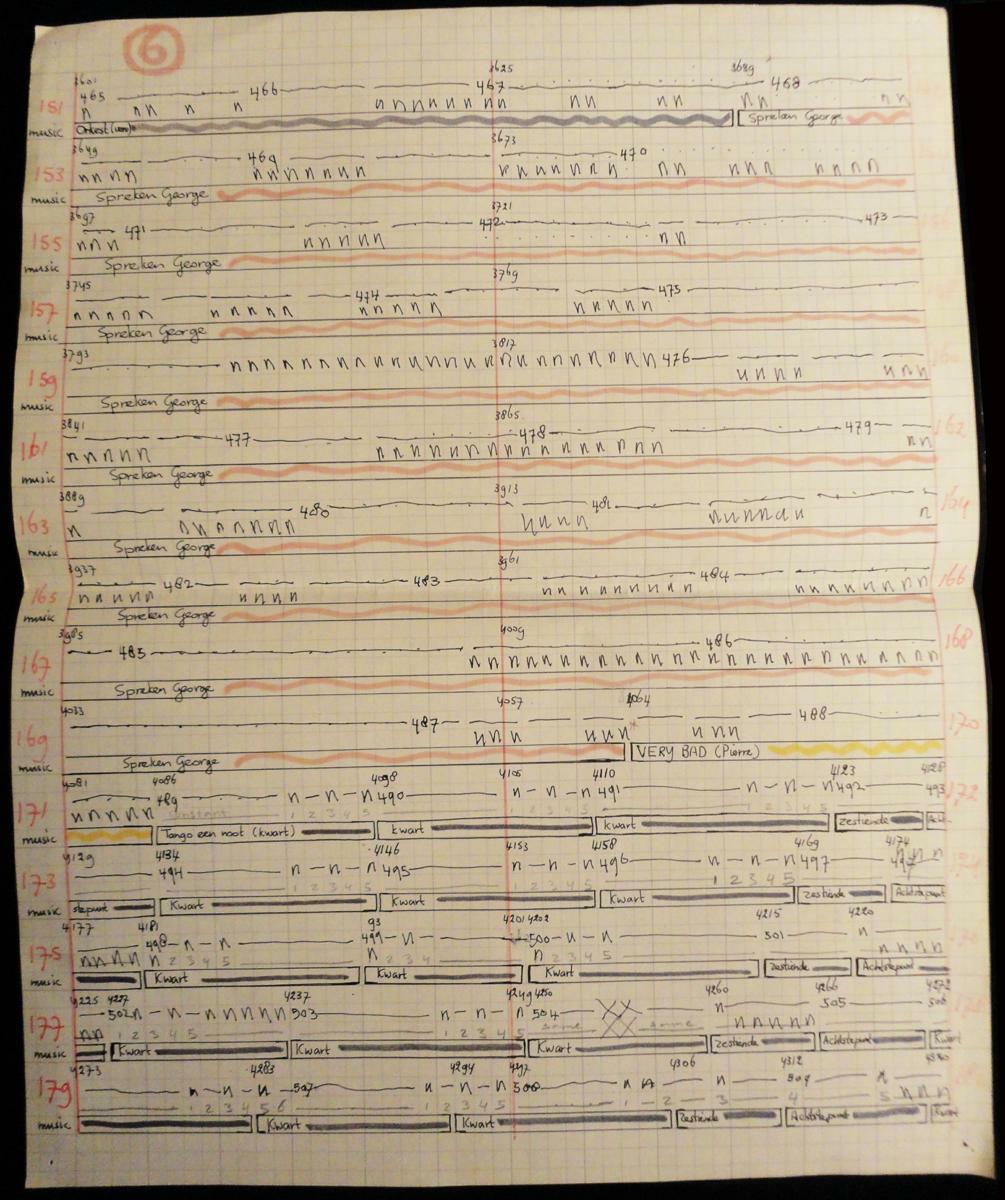 6
3601 3625 3689
465 466 467 468
151 n n n n n n n n n n n n n n n n n n n n n
music Spreken George
3649 3673
469 470
153 n n n n n n n n n n n n n n n n n n n n n n n n n n n
music Spreken George
3697 3721
471 472 473
155 n n n n n n n n n n
music Spreken George
3745 3769
474 475
157 n n n n n n n n n n n n n n n n n n n n
music Spreken George
3793 3817
159 n n n n n n n n n n n n n n n n n n n n n n n 476
n n n n n n n
music Spreken George
3841 3865
477 478 479 162
161 n n n n n n n n n n n n n n n n n n n n n n
music Spreken George
3889 3913
480 481 164
163 n n n n n n n n n n n n n n n n n n n
music Spreken George
3937 3961
482 483 484 166
165 n n n n n n n n n n n n n n n n n n n n n n n n
music Spreken George
3985 4009
485 486 168
167 n n n n n n n n n n n n n n n n n n n n n n n n n
music Spreken George
4033 4057 4064
487 488 170
169 n n n n n n n n n
music Spreken George VERY BAD (Pierre)
4081 4086 4098 4105 4110 4123 4128
489 n n n 490 n n n 491 n n n 492 493
171 n n n n n 1 2 3 4 5 1 2 3 4 5 1 2 3 4 5 172
music Tango een noot (kwart) Kwart Kwart Zestiende Acht-
4129 4134 4146 4153 4158 4169 4174
494 n n n 495 n n n 496 n n n 497 n n n
173 1 2 3 4 5 1 2 3 4 5 1 2 3 4 5
music stepunt Kwart Kwart Kwart Zestiende Achtstepunt
4177 4181 93 4201 4202 4215 4220
498 n n 499 n 500 n n 501 n
175 n n n n n 2 3 4 5 n 2 3 4 n 2 3 4 5 n n n n
music Kwart Kwart Kwart Zestiende Achtstepunt
4225 4227 4237 4249 4250 4260 4266 4272
502 n n n n n n n 503 n n n 504 n 505 506
177 n n 1 2 3 4 5 1 2 3 4 5 same same n n n n n
music Kwart Kwart Kwart Zestiende Achtstepunt Kwart
4273 4283 4294 4297 4306 4312
n n n 507 n n n 508 n n n 509 n
179 1 2 3 4 5 6 1 2 3 4 5 1 2 3 4 5 n n n
music Kwart Kwart Zestiende Achtstepunt Kwart